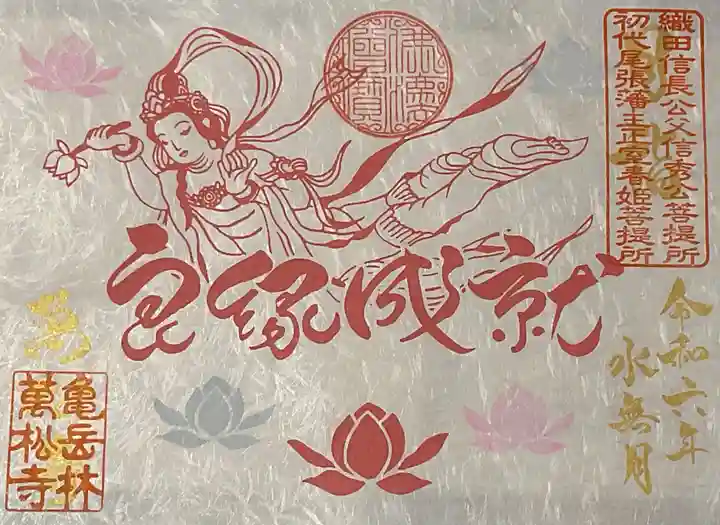 織田信長公父信秀公菩提所
初代尾張藩主正室春姫菩提所
佛法僧寶
良縁成就
令和六年
水無月
亀岳林
萬松寺